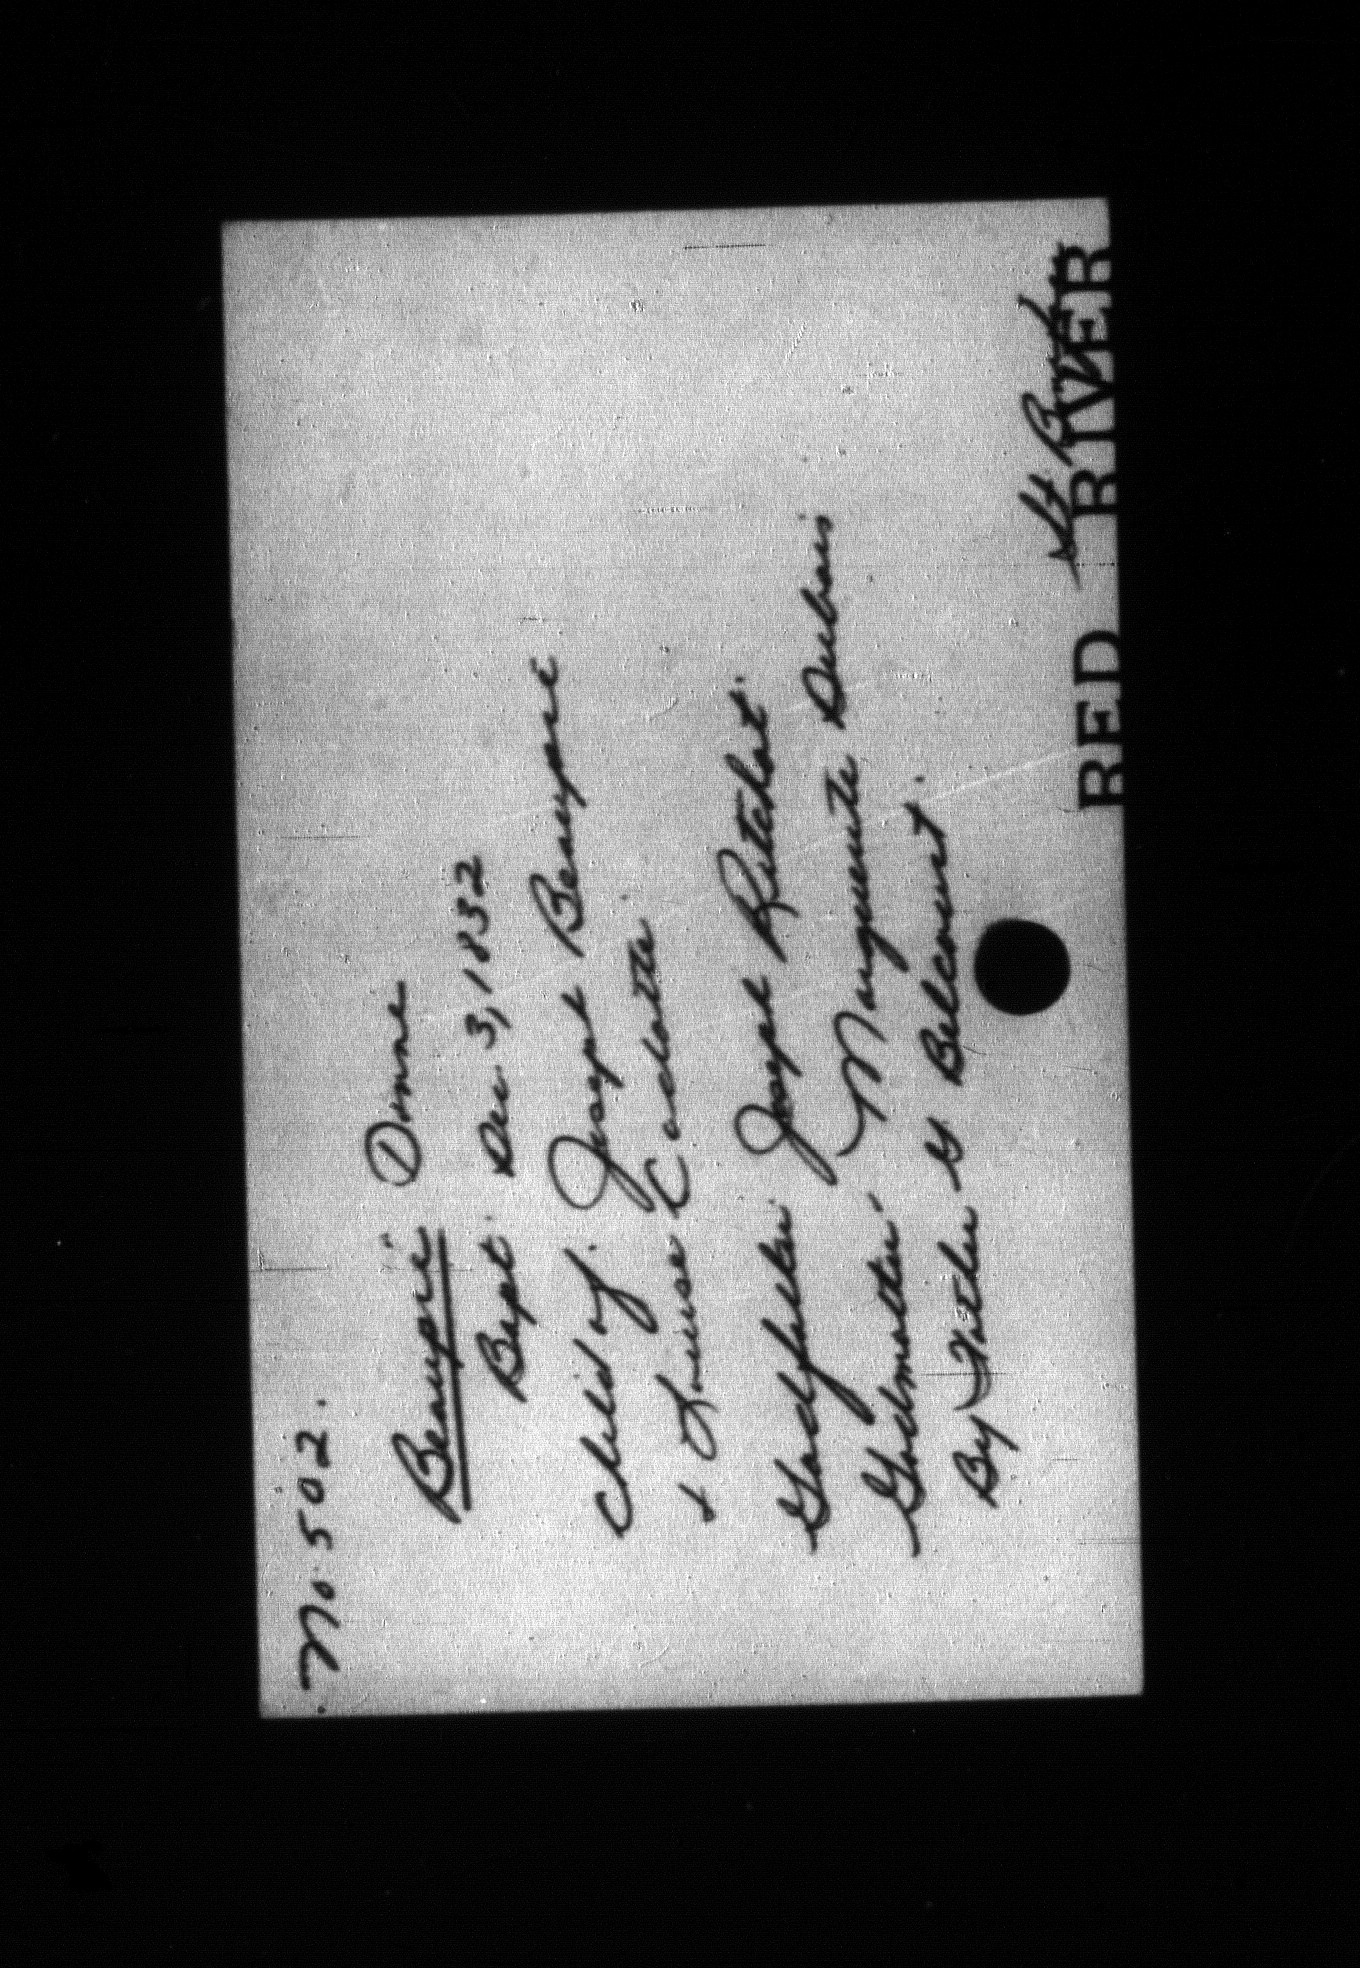 No. 502.
Beaupré Donne
Bapt. Dec. 3, 1832
Child of. Joseph Beaupré
& Louise Cadotte.
Godfather. Joseph Ritchot.
Godmother. Marguerite Dubois
By Father G Belcourt.
St
RED RIVER